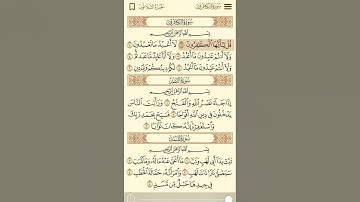 سورة الكافرون
الجزء الثلاثون
سورة الكافرون
بسم الله الرحمن الرحيم
قل يأيها الكفرون ١ لا أعبد ما تعبدون ٢
ولا أنتم عبدون ما أعبد ٣ ولا أنا عابد ما عبدتم ٤
ولا أنتم عبدون ما أعبد ٥ لكم دينكم ولي دين ٦
سورة النصر
بسم الله الرحمن الرحيم
إذا جاء نصر الله والفتح ١ ورأيت الناس
يدخلون في دين الله أفواجا ٢ فسبح بحمد ربك
واستغفره إنه كان توابا ٣
سورة المسد
بسم الله الرحمن الرحيم
تبت يدا أبي لهب وتب ١ ما أغنى عنه ماله وما كسب ٢
سيصلى نارا ذات لهب ٣ وامرأته حمالة الحطب ٤
في جيدها حبل من مسد ٥